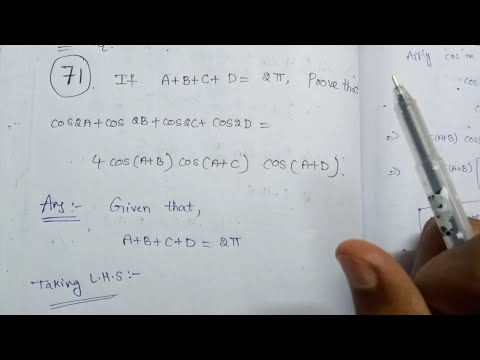 71. If A+B+C+D = 2π, Prove that
cos2A+cos 2B+cos2C+ cos2D =
4 cos(A+B) cos(A+C) cos(A+D).
Ans:- Given that,
A+B+C+D = 2π
Taking L.H.S:-
Apply 'cos' on
cos
⇒
⇒ (A+B)